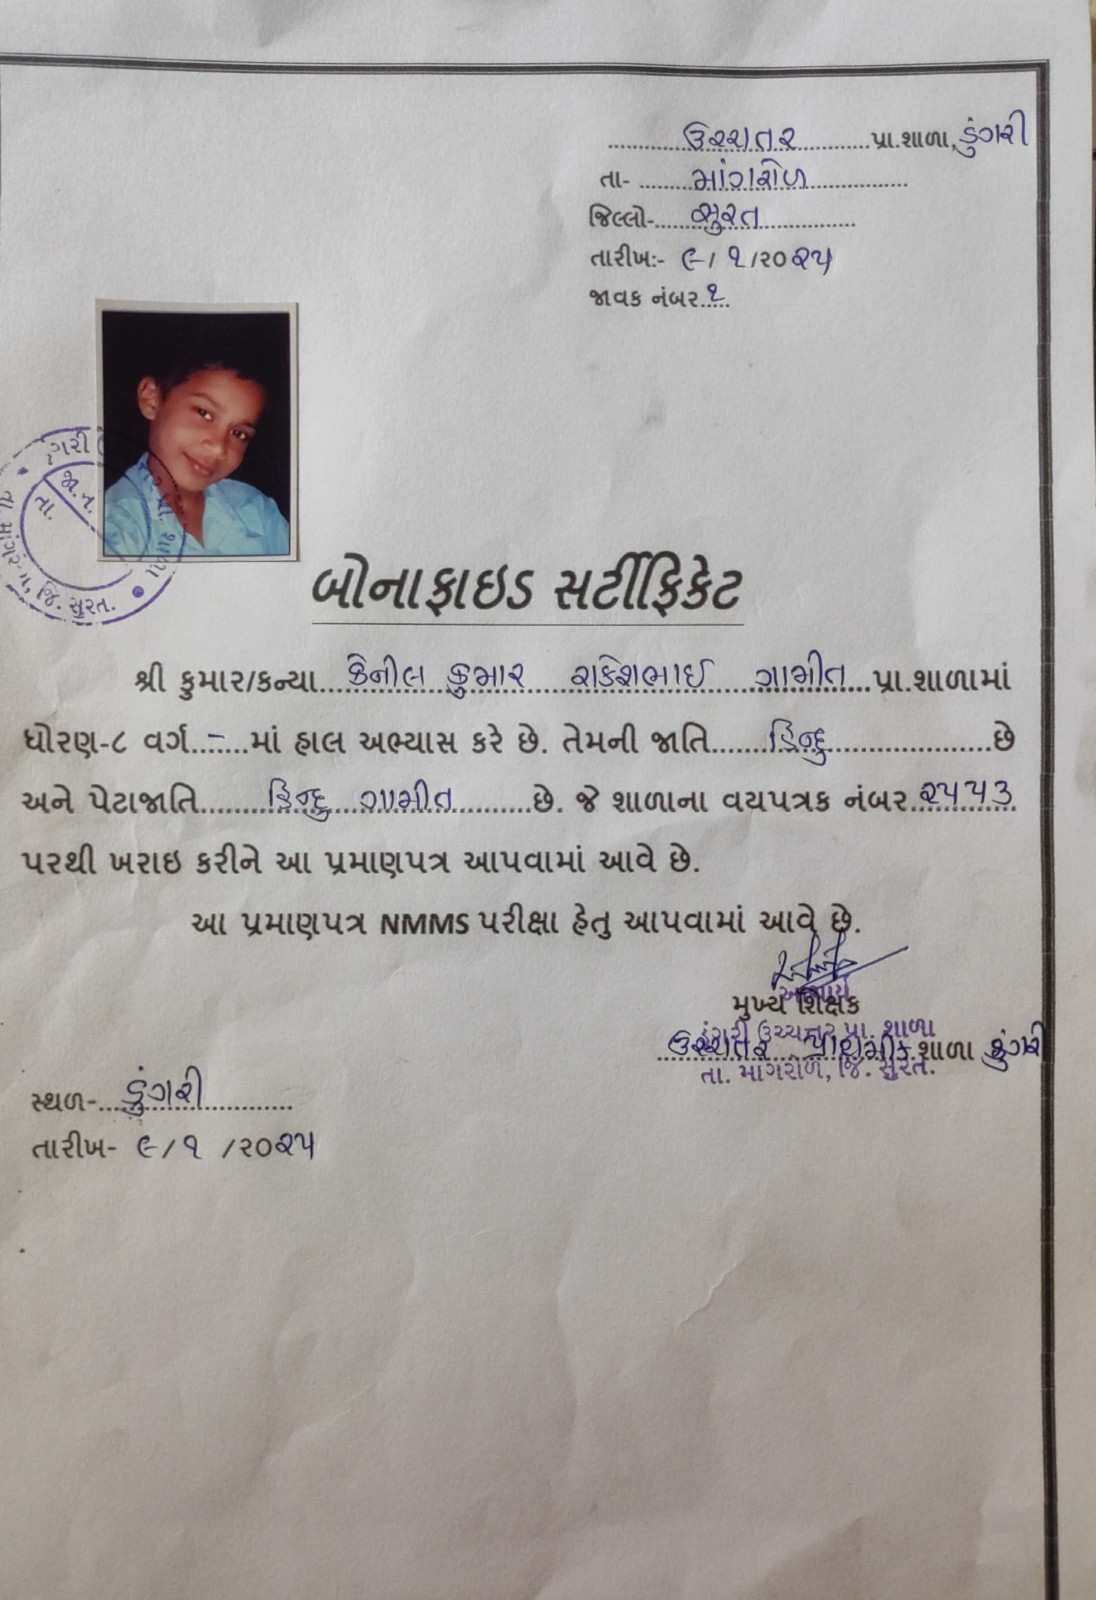 ઉચ્ચતર પ્રા.શાળા, ડુંગરી
તા- માંગરોળ
જિલ્લો- સુરત
તારીખ:- ૯/૧/૨૦૨૫
જાવક નંબર ૧
બોનાફાઇડ સર્ટીફિકેટ
શ્રી કુમાર/કન્યા કેનીલ કુમાર રાકેશભાઈ ગામીત પ્રા.શાળામાં
ધોરણ-૮ વર્ગ - માં હાલ અભ્યાસ કરે છે. તેમની જાતિ હિન્દુ છે
અને પેટાજાતિ હિન્દુ ગામીત છે. જે શાળાના વયપત્રક નંબર ૨૫૫૩
પરથી ખરાઇ કરીને આ પ્રમાણપત્ર આપવામાં આવે છે.
આ પ્રમાણપત્ર NMMS પરીક્ષા હેતુ આપવામાં આવે છે.
આચાર્ય
મુખ્ય શિક્ષક
ડુંગરી ઉચ્ચતર પ્રા. શાળા
ઉચ્ચતર પ્રાથમીક શાળા ડુંગરી
તા. માંગરોળ, જિ. સુરત.
સ્થળ- ડુંગરી
તારીખ- ૯/૧/૨૦૨૫
જા.ન.
તા.
જિ. સુરત.